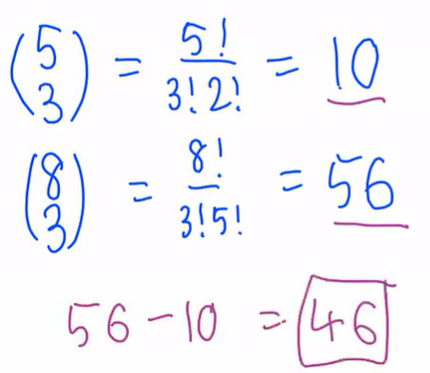 (5 3) = 5!/3!2! = 10
(8 3) = 8!/3!5! = 56
56 - 10 = 46